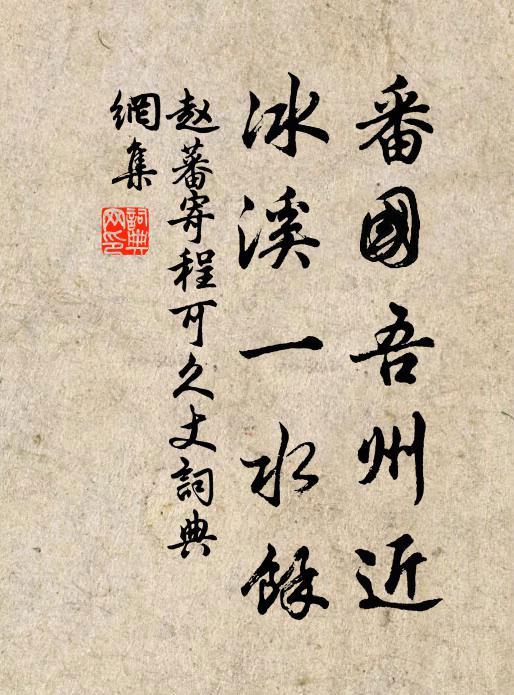 番國吾州近
冰溪一水餘
赵蕃寄程可久丈詞典
網集
詞典
网印